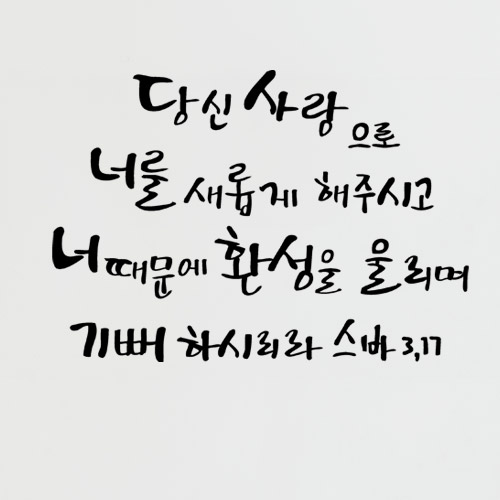 당신 사랑으로
너를 새롭게 해주시고
너 때문에 환성을 울리며
기뻐 하시리라 스바 3,17